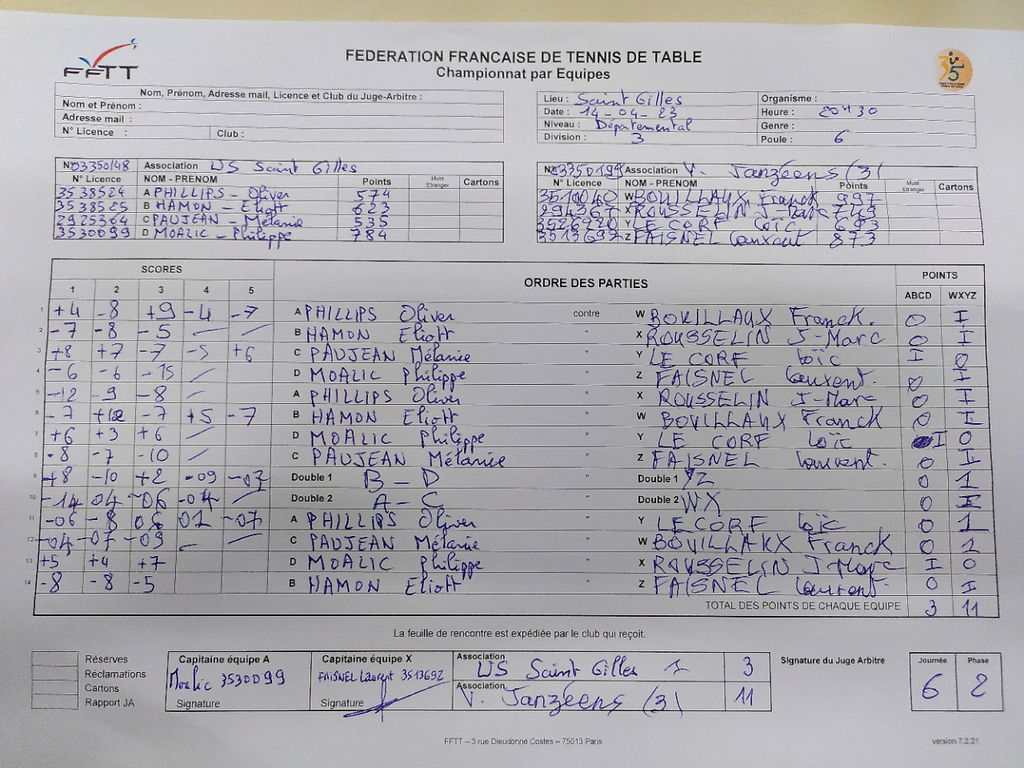 FFTT
FEDERATION FRANCAISE DE TENNIS DE TABLE
Championnat par Equipes
Nom, Prénom, Adresse mail, Licence et Club du Juge-Arbitre :
Nom et Prénom :
Adresse mail :
N° Licence : Club :
Lieu : Saint Gilles Organisme :
Date : 14-04-23 Heure : 20H30
Niveau : Départemental Genre :
Division : 3 Poule : 6
N° 03350148 Association US Saint Gilles
N° Licence NOM - PRENOM Points Muté Etranger Cartons
3538524 A PHILLIPS - Oliver 574
3538525 B HAMON - Eliott 623
2925364 C PAUJEAN - Mélanie 535
3530099 D MOALIC - Philippe 784
N° 03350199 Association V. Janzéens (3)
N° Licence NOM - PRENOM Points Muté Etranger Cartons
W BOUILLAUX Franck
X ROUSSELIN J-Marc
Y LE CORF Loïc
3513692 Z FAISNEL Laurent 873
SCORES ORDRE DES PARTIES POINTS
1 2 3 4 5 ABCD WXYZ
1 +4 -8 +9 -4 -7 A PHILLIPS Oliver contre W BOUILLAUX Franck. 0 I
2 -7 -8 -5 — — B HAMON Eliott " X ROUSSELIN J-Marc 0 I
3 +8 +7 -7 -5 +6 C PAUJEAN Mélanie " Y LE CORF Loïc I 0
4 -6 -6 -15 / D MOALIC Philippe " Z FAISNEL Laurent. 0 I
5 -12 -9 -8 / A PHILLIPS Oliver " X ROUSSELIN J-Marc 0 I
6 -7 +12 -7 +5 -7 B HAMON Eliott " W BOUILLAUX Franck 0 I
7 +6 +3 +6 / D MOALIC Philippe " Y LE CORF Loïc I 0
8 -8 -7 -10 / C PAUJEAN Mélanie " Z FAISNEL Laurent. 0 I
9 +8 -10 +2 -09 -07 Double 1 B-D " Double 1 YZ 0 1
10 -14 04 -06 -04 / Double 2 A-C " Double 2 WX 0 I
11 -06 -8 06 01 -07 A PHILLIPS Oliver " Y LE CORF Loïc 0 1
12 -04 -07 -09 — — C PAUJEAN Mélanie " W BOUILLAUX Franck 0 1
13 +5 +4 +7 D MOALIC Philippe " X ROUSSELIN J-Marc I 0
14 -8 -8 -5 B HAMON Eliott " Z FAISNEL Laurent 0 I
TOTAL DES POINTS DE CHAQUE EQUIPE 3 11
La feuille de rencontre est expédiée par le club qui reçoit.
Réserves
Réclamations
Cartons
Rapport JA
Capitaine équipe A
Moalic 3530099
Signature
Capitaine équipe X
FAISNEL Laurent 3513692
Signature
Association US Saint Gilles 1 3
Association V. Janzéens (3) 11
Signature du Juge Arbitre
Journée Phase
6 2
FFTT – 3 rue Dieudonné Costes – 75013 Paris
version 7.2.21